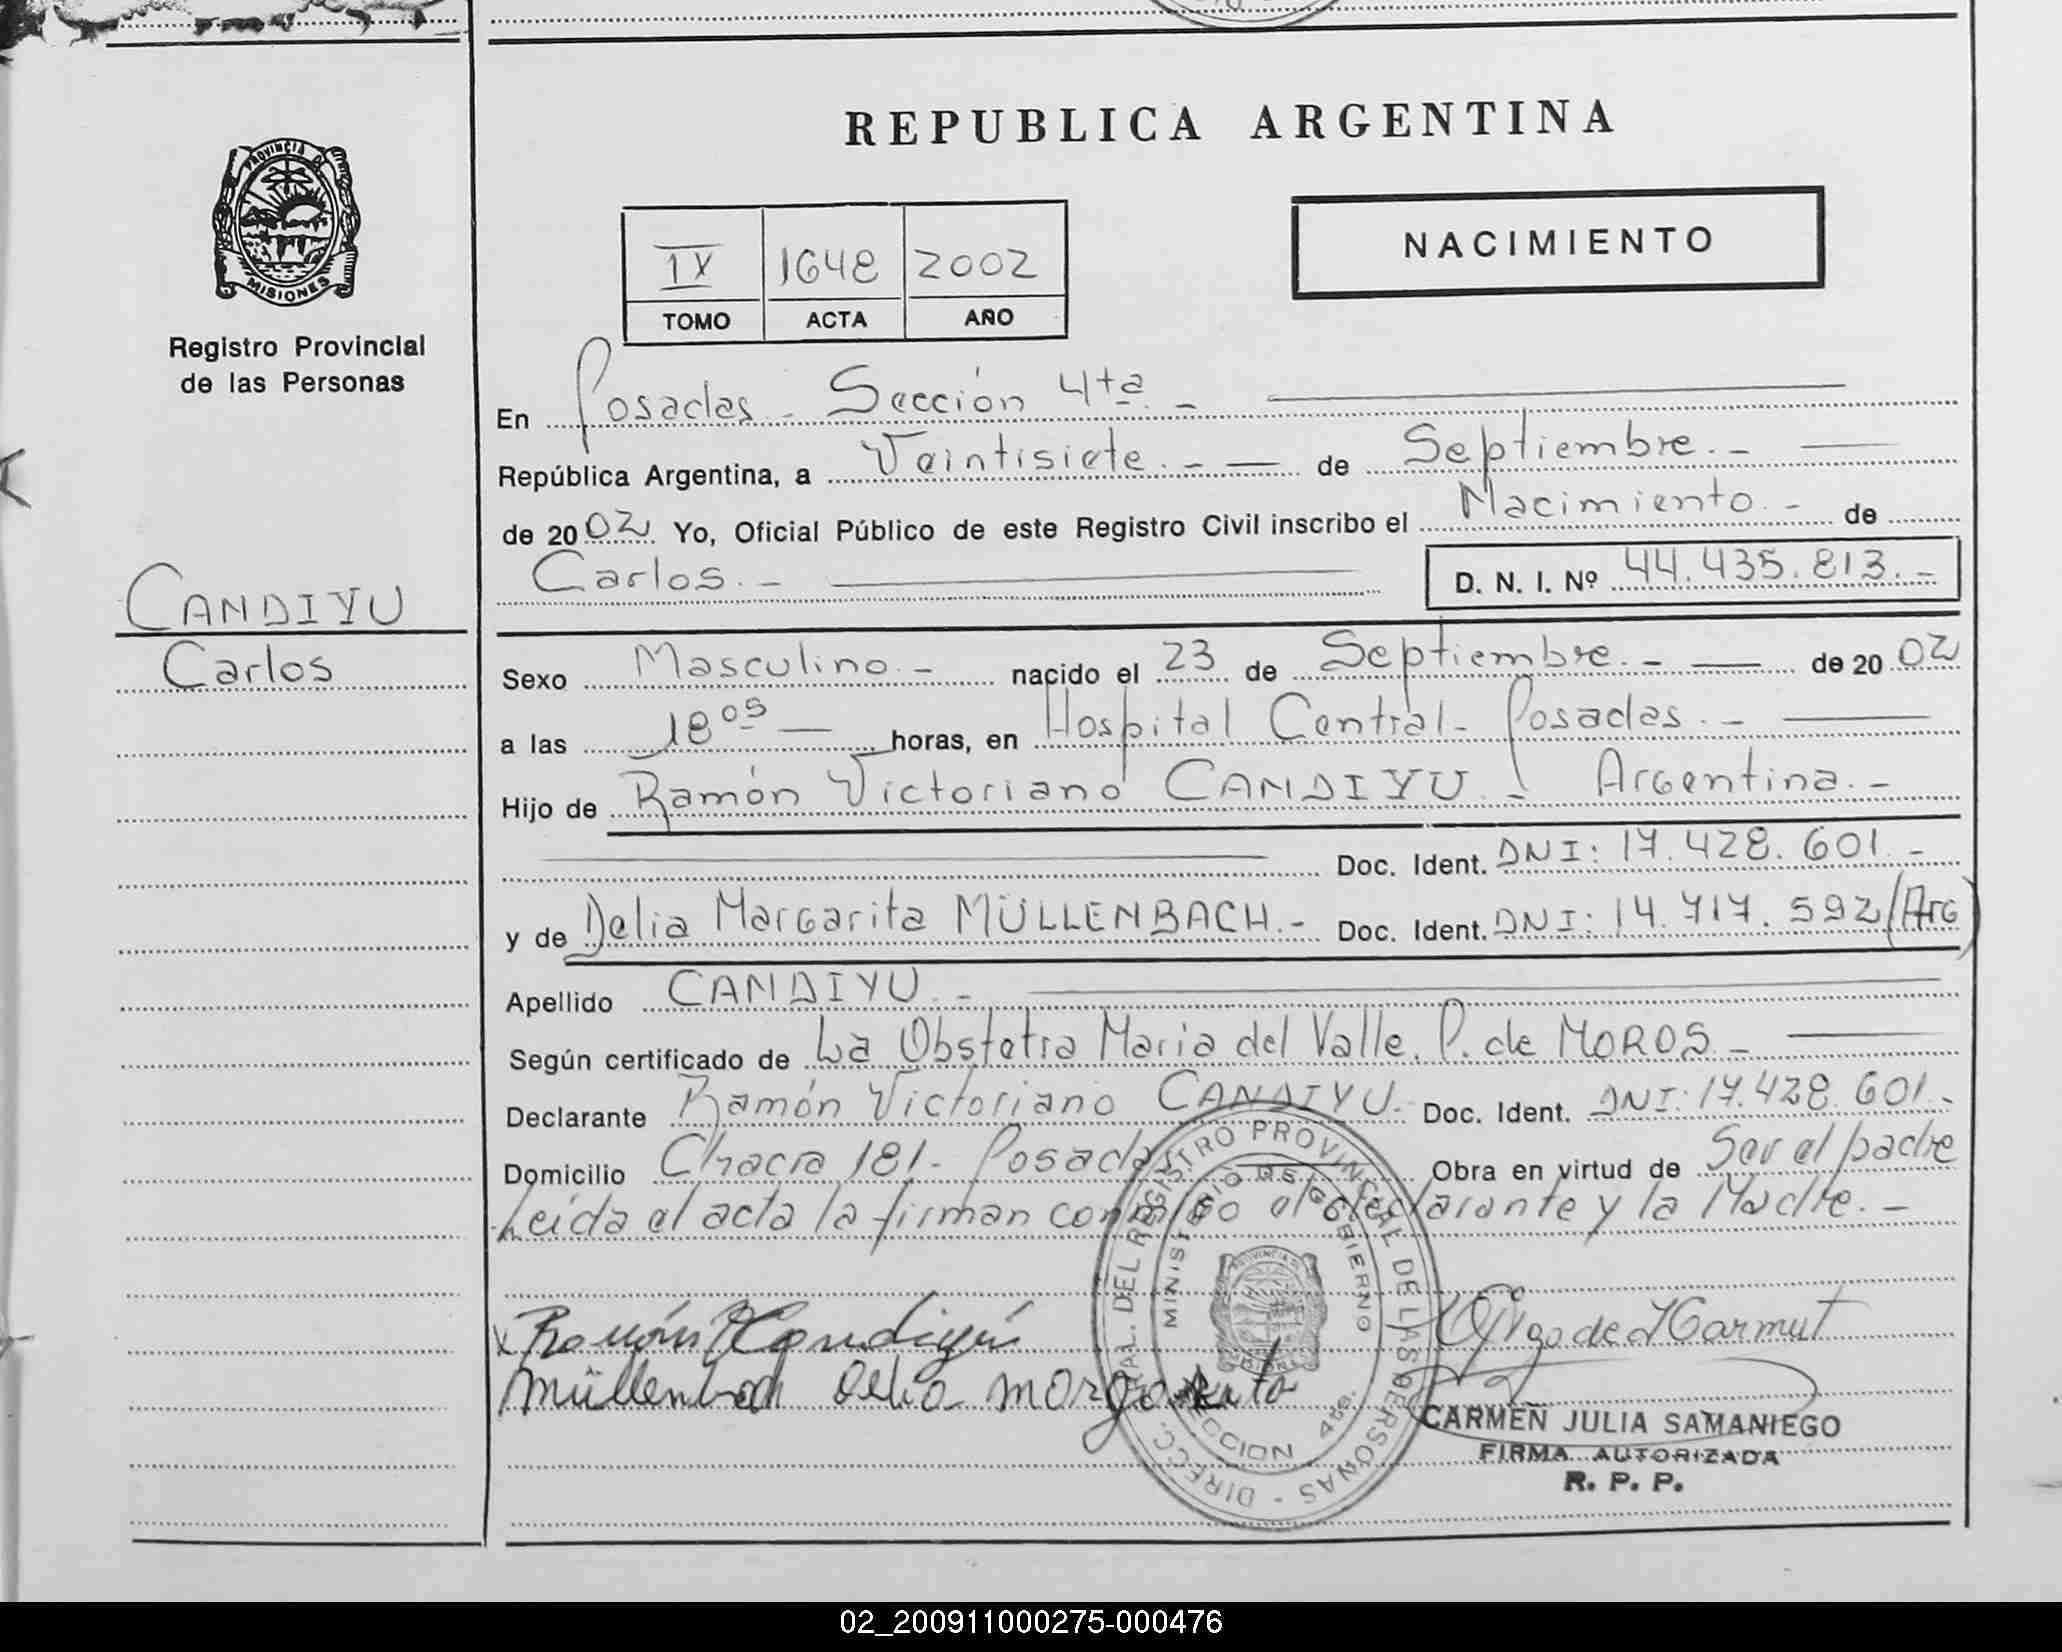 REPUBLICA ARGENTINA
NACIMIENTO
PROVINCIA DE
MISIONES
Registro Provincial
de las Personas
IV 1648 2002
TOMO ACTA AÑO
En Posadas - Sección 4ta. -
República Argentina, a Veintisiete. - de Septiembre. -
de 2002 Yo, Oficial Público de este Registro Civil inscribo el Nacimiento. - de
Carlos. - D. N. I. Nº 44.435.813. -
CANDIYU
Carlos
Sexo Masculino. - nacido el 23 de Septiembre. - de 2002
a las 18 05 horas, en Hospital Central - Posadas. -
Hijo de Ramón Victoriano CANDIYU. - Argentina. -
Doc. Ident. DNI: 17.428.601. -
y de Delia Margarita MÜLLENBACH. - Doc. Ident. DNI: 14.717.592 (Arg)
Apellido CANDIYU. -
Según certificado de La Obstetra Maria del Valle P. de MOROS -
Declarante Ramón Victoriano CANDIYU. - Doc. Ident. DNI: 17.428.601. -
Domicilio Chacra 181 - Posadas Obra en virtud de Ser el padre
Leída el acta la firman conmigo el declarante y la Madre. -
Ramón Candiyú
Müllenbach Delia Margarita
DIRECC. GRAL. DEL REGISTRO PROVINCIAL DE LAS PERSONAS -
MINISTERIO DE GOBIERNO
SECCION 4ta.
CARMEN JULIA SAMANIEGO
FIRMA AUTORIZADA
R. P. P.
02_200911000275-000476